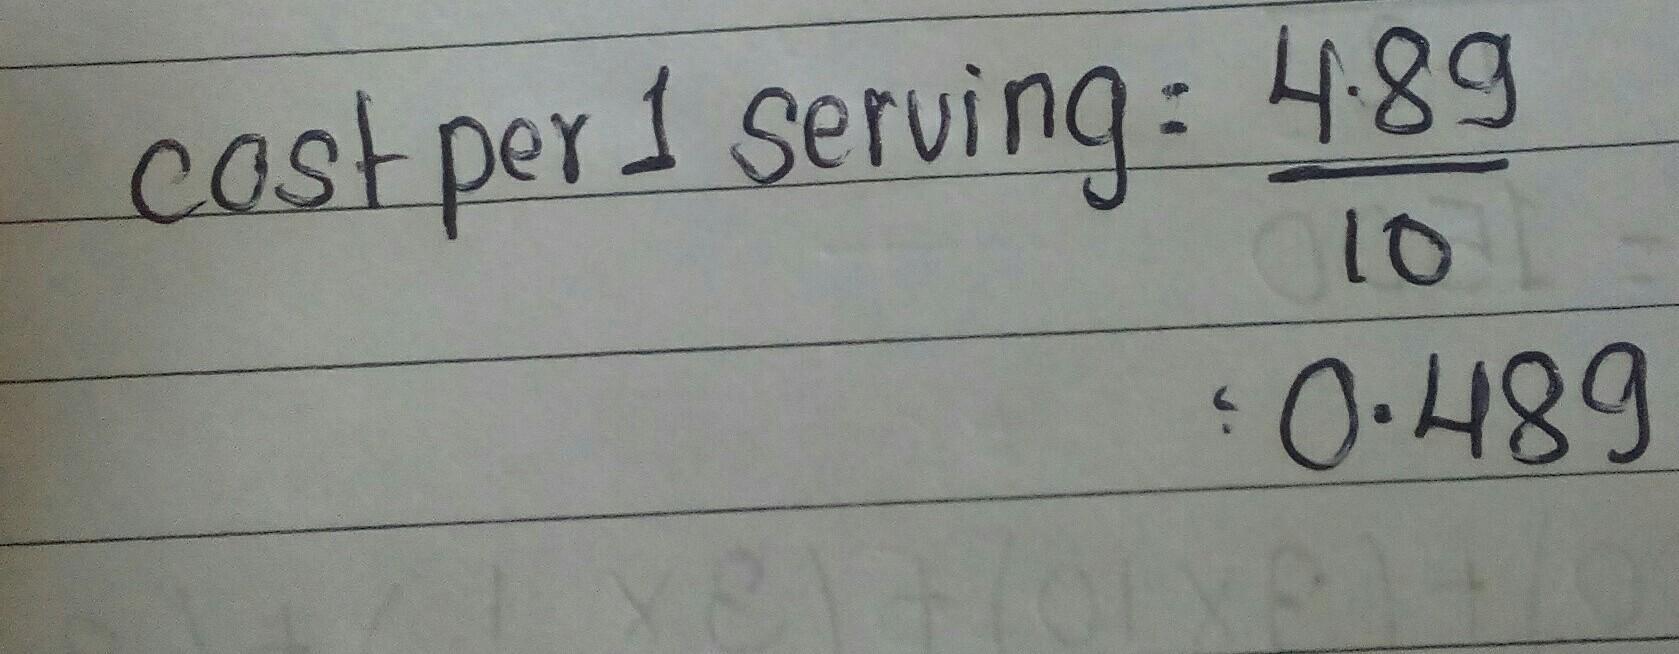 cost per 1 serving = 4.89
10
= 0.489